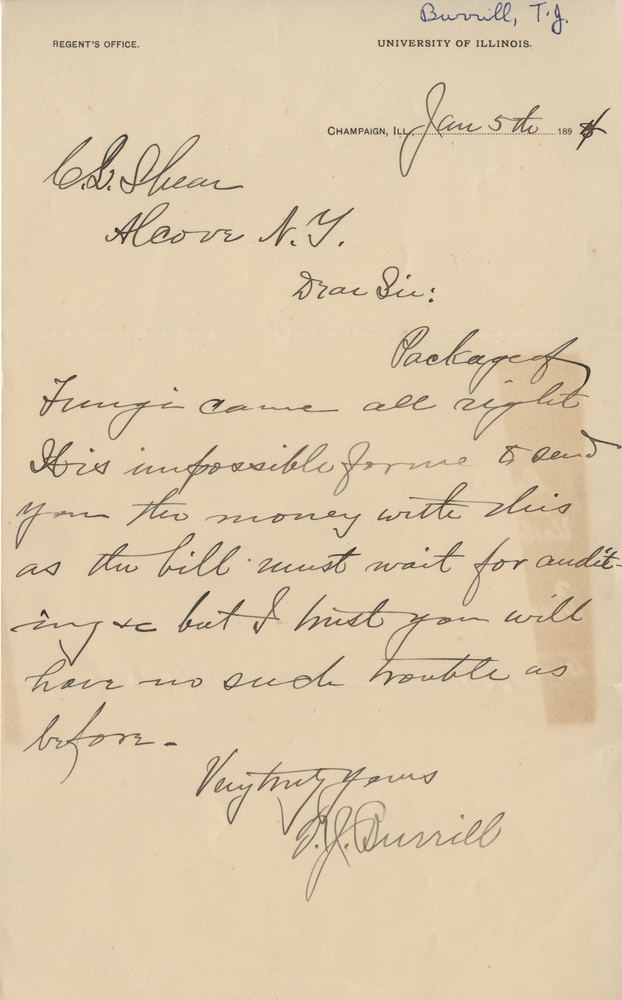 Burrill, T.J.
REGENT'S OFFICE. UNIVERSITY OF ILLINOIS.
CHAMPAIGN, ILL., Jan 5th 1894
C. L. Shear
Alcove N.Y.
Dear Sir:
Package of
Fungi came all right
It is impossible for me to send
you the money with this
as the bill must wait for audit-
ing &c but I trust you will
have no such trouble as
before.
Very truly yours
T. J. Burrill